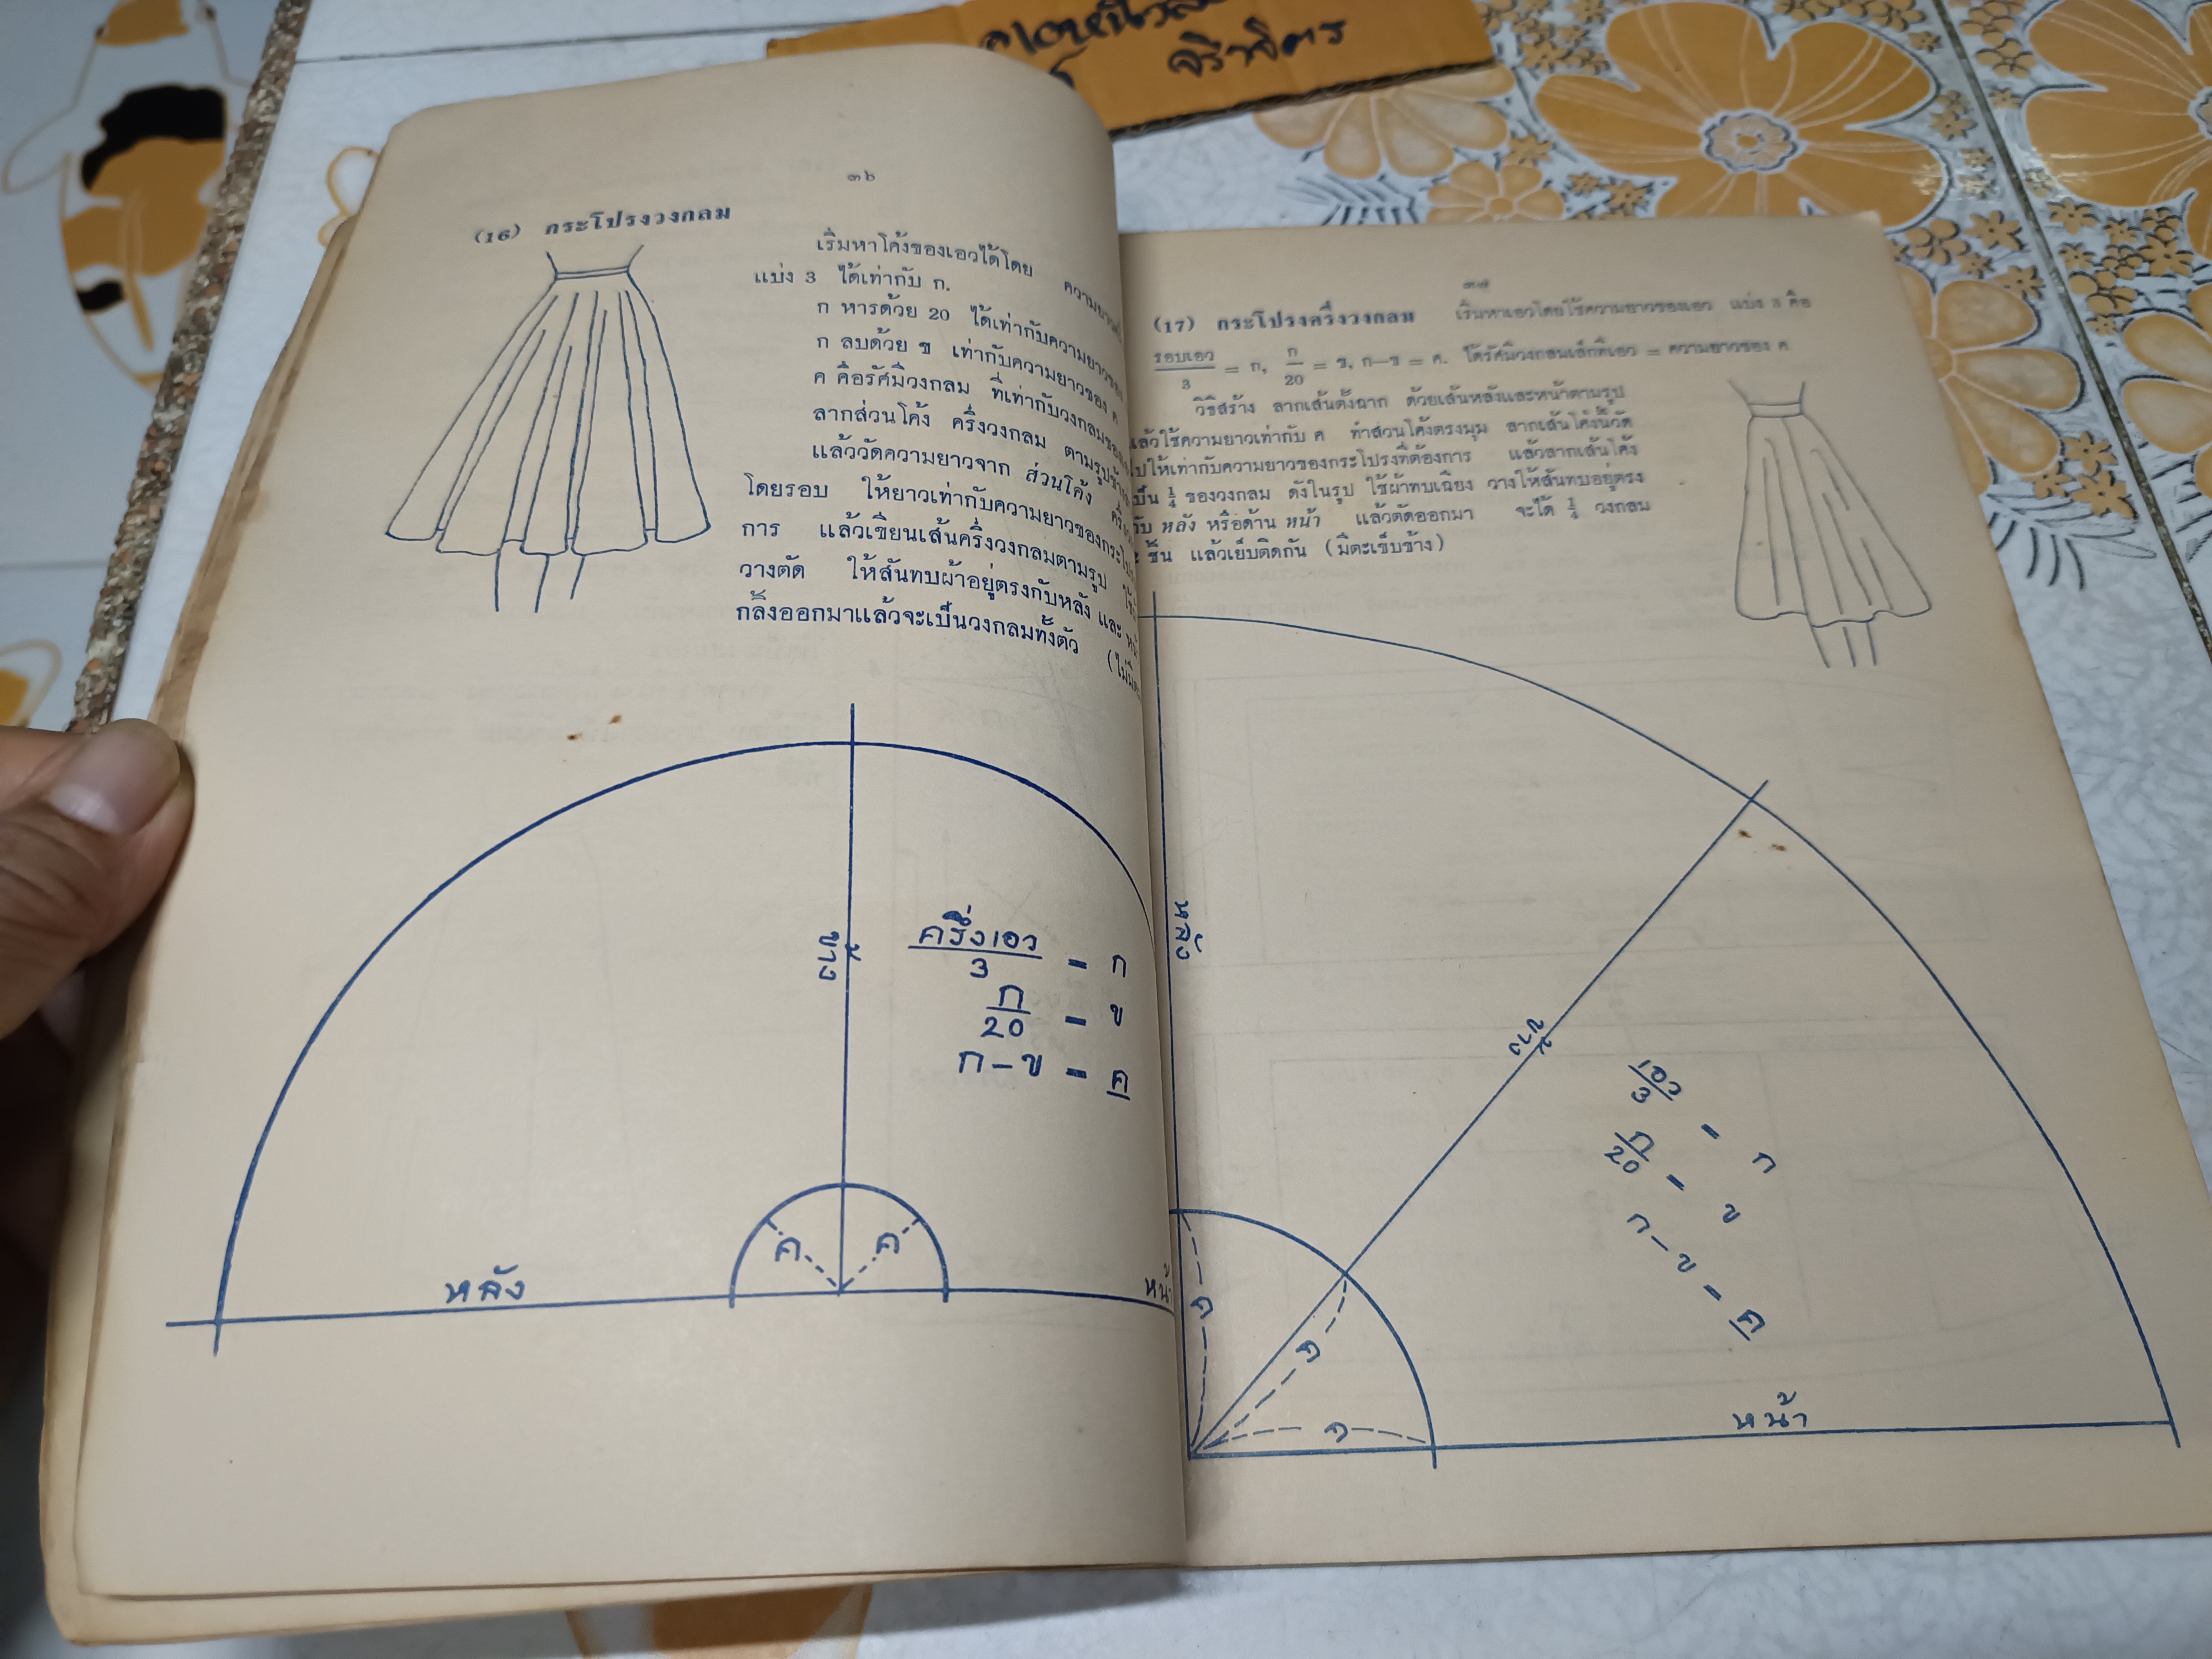 จิราจิตร
๓๖
(16) กระโปรงวงกลม
เริ่มหาโค้งของเอวได้โดย
แบ่ง 3 ได้เท่ากับ ก.
ก หารด้วย 20 ได้เท่ากับความยาวของ
ก ลบด้วย ข เท่ากับความยาวของ ค
ค คือรัศมีวงกลม ที่เท่ากับวงกลมของ
ลากส่วนโค้ง ครึ่งวงกลม ตามรูป
แล้ววัดความยาวจาก ส่วนโค้ง
โดยรอบ ให้ยาวเท่ากับความยาวของกระโปรง
การ แล้วเขียนเส้นครึ่งวงกลมตามรูป
วางตัด ให้สันทบผ้าอยู่ตรงกับหลัง และ
กลิ้งออกมาแล้วจะเป็นวงกลมทั้งตัว
ข้าง
ครึ่งเอว
3 = ก
ก
20 = ข
ก - ข = ค
ค ค
หลัง
หน้า
๓๗
(17) กระโปรงครึ่งวงกลม เริ่มหาเอวโดยใช้ความยาวของเอว แบ่ง 3 คือ
รอบเอว
3 = ก, ก
20 = ข, ก—ข = ค. ได้รัศมีวงกลมเล็กที่เอว = ความยาวของ ค
วิธีสร้าง ลากเส้นตั้งฉาก ด้วยเส้นหลังและหน้าตามรูป
แล้วใช้ความยาวเท่ากับ ค ทำส่วนโค้งตรงมุม ลากเส้นโค่งนี้วัด
ไปให้เท่ากับความยาวของกระโปรงที่ต้องการ แล้วลากเส้นโค้ง
เป็น ¼ ของวงกลม ดังในรูป ใช้ผ้าทบเฉียง วางให้สันทบอยู่ตรง
กับ หลัง หรือด้าน หน้า แล้วตัดออกมา จะได้ ¼ วงกลม
ชิ้น แล้วเย็บติดกัน (มีตะเข็บข้าง)
หลัง
ข้าง
เอว
3 = ก
ก
20 = ข
ก - ข = ค
ค
ค
ค
หน้า